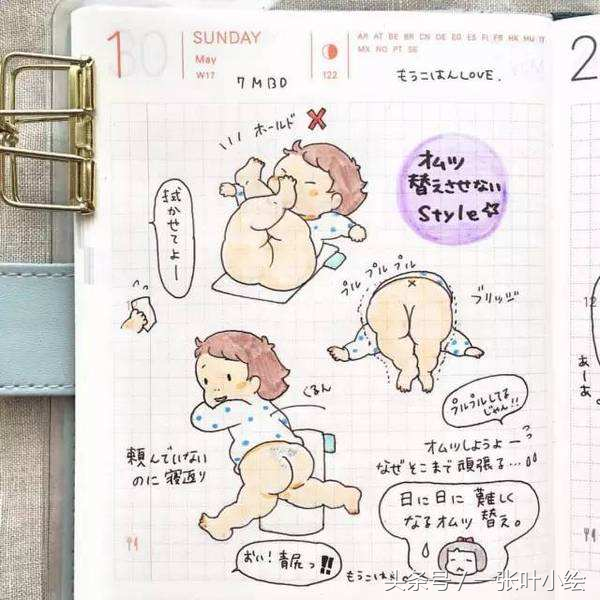 1 30
SUNDAY
May
W17
122
AR AT BE BR CN DE EG ES FI FR HK HU IT
MX NO PT SE
2
7M13D
もうこはんLOVE.
ホールド
オムツ
替えさせない
Style☆
拭かせてよー
プル プル プル
ブリッジ
プルプルしてる
じゃん!!
くるん
頼んでいない
のに 寝返り
オムツしようよー
なぜそこまで頑張る…
日に日に 難しく
なるオムツ 替え。
おい!青尻っ!!
もうこはん
12
あーあ
头条号 / 一张叶小绘